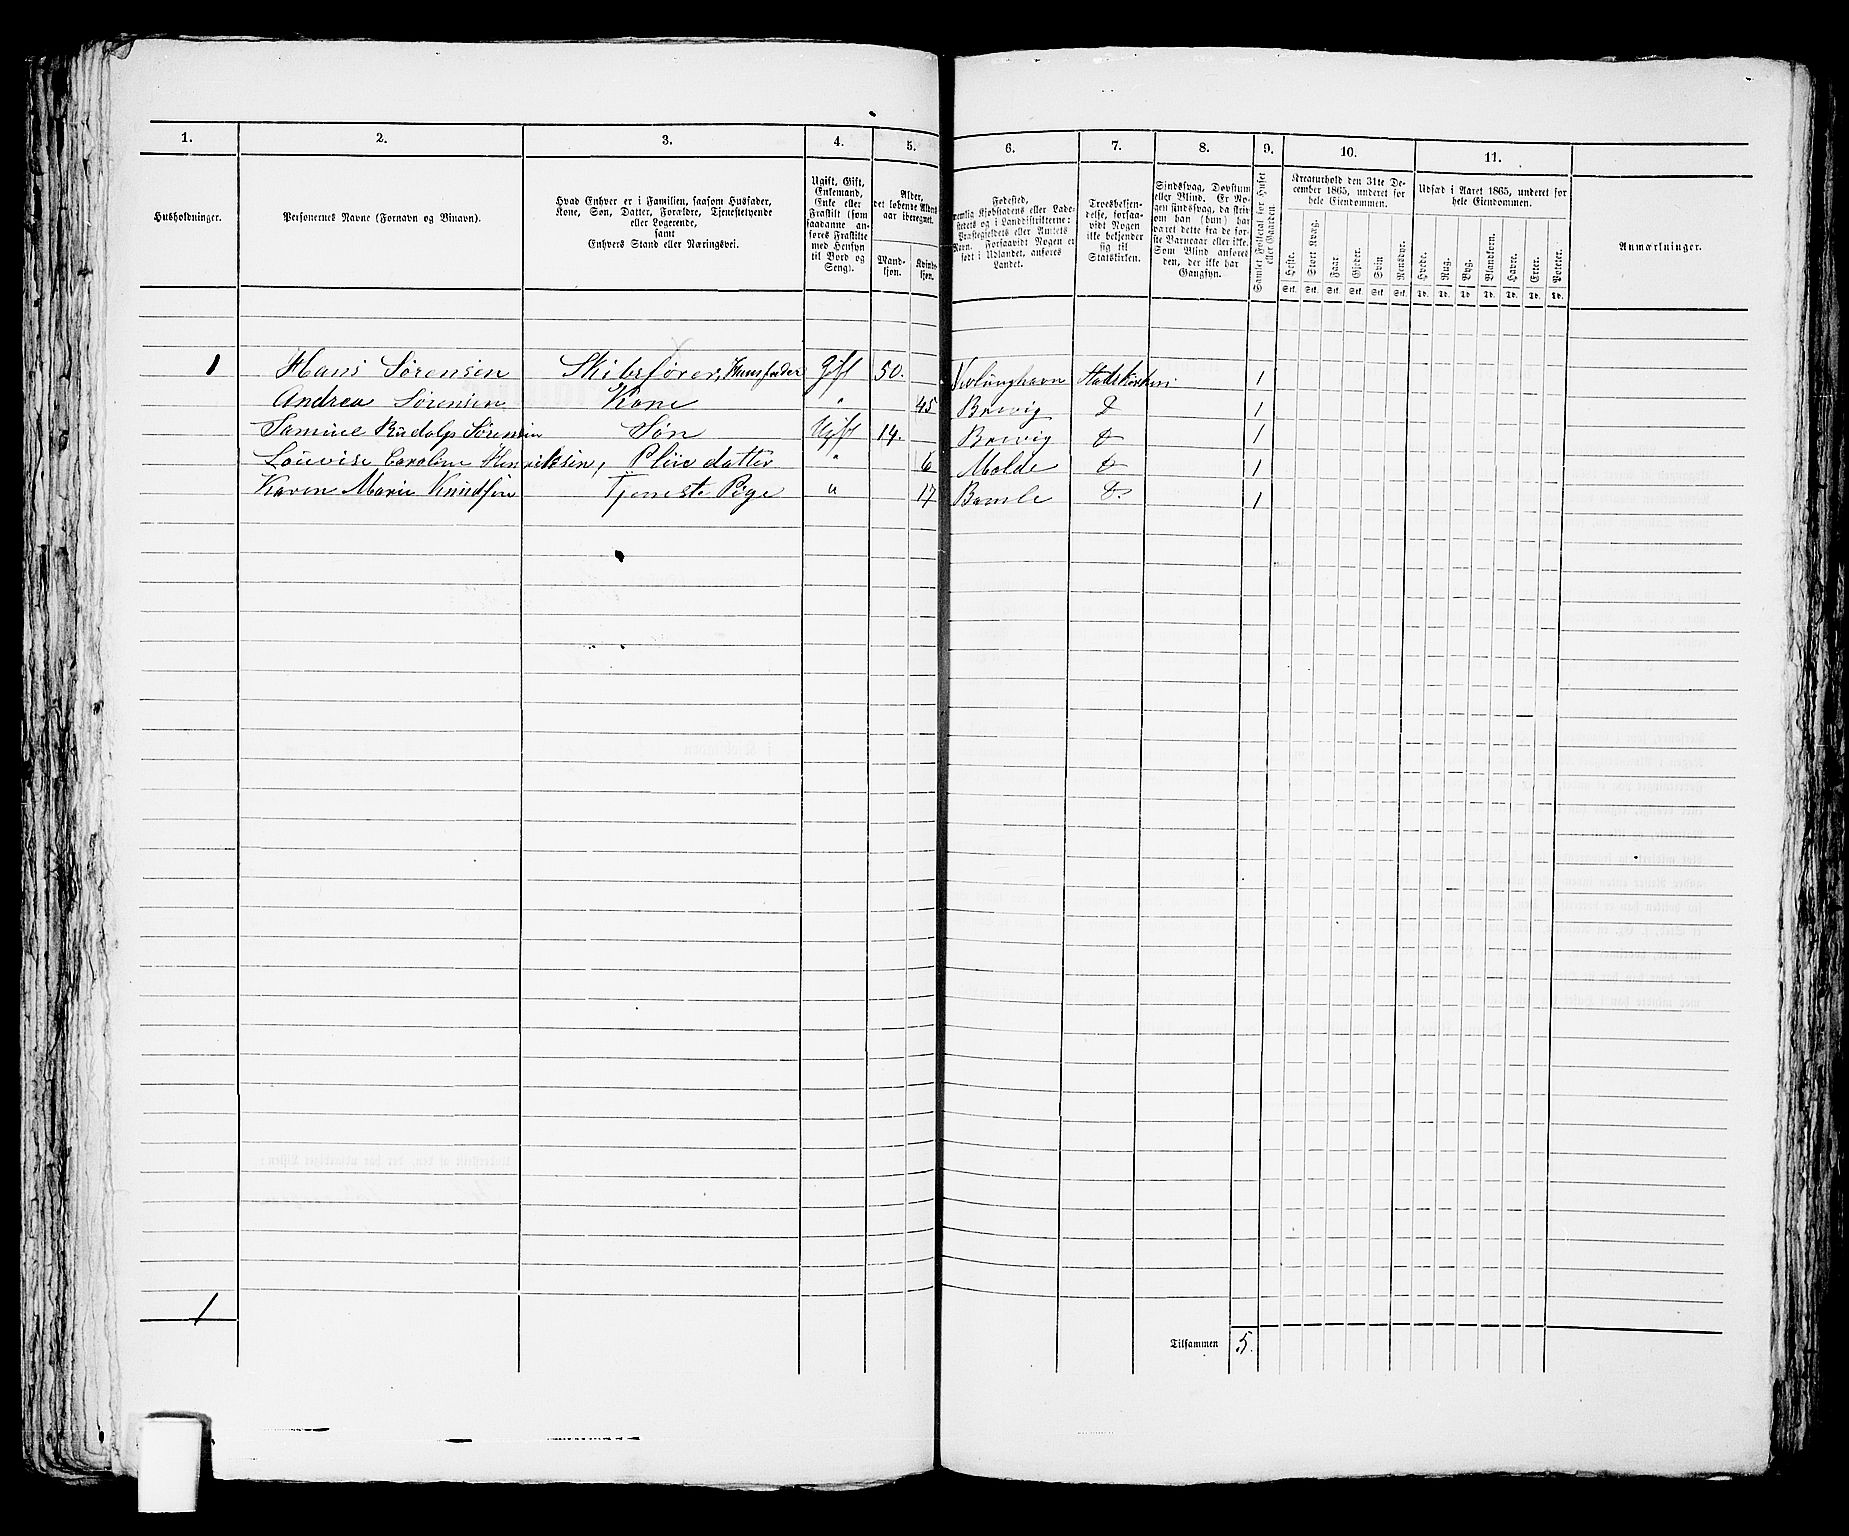 1. 2. 3. 4. 5. 6. 7. 8. 9. 10. 11.
Husholdninger.
Personernes Navne (Fornavn og Binavn).
Hvad Enhver er i Familien, saasom Husfader,
Kone, Søn, Datter, Forældre, Tjenestetyende
eller Logerende,
samt
Enhvers Stand eller Næringsvei.
Ugift, Gift,
Enkemand,
Enke eller
Fraskilt (som
saadanne an-
føres Fraskilte
med Hensyn
til Bord og
Seng).
Alder,
det løbende Alders-
aar iberegnet.
Mand-
kjøn.
Kvind-
kjøn.
Fødested,
nemlig Kjøbstadens eller Lade-
stedets og i Landdistrikterne:
Præstegjeldets eller Amtets
Navn. Forsaavidt Nogen er
født i Udlandet, anføres
Landet.
Troesbekjen-
delse, forsaa-
vidt Nogen
ikke bekjender
sig til
Statskirken.
Sindssvag, Døvstum
eller Blind. Er No-
gen sindssvag, da skri-
ves om han (hun) har
været dette fra de før-
ste Barneaar eller ikke.
Som Blind anføres
den, der ikke har
Gangsyn.
Samlet Folketal for Huset
eller Gaarden.
Kreaturhold den 31te De-
cember 1865, underet for
hele Eiendommen.
Heste. Stort Kvæg. Faar. Gjeder. Svin Rensdyr.
Stk. Stk. Stk. Stk. Stk. Stk.
Udsæd i Aaret 1865, underet for
hele Eiendommen.
Hvede. Rug. Byg. Blandkorn. Havre. Erter. Poteter.
Td. Td. Td. Td. Td. Td. Td.
Anmærkninger.
1 Hans Sørensen Skibsfører, Huusfader Gift 50. Statskirken 1
Andrea Sørensen Kone " 45 Brevig D 1
Samuel Rudolf Sørensen Søn Ugift 14. Brevig D 1
Louvise Caroline Henriksen, Pleie datter " 6 Molde D 1
Karen Marie Knudsen Tjeneste Pige " 17 Bamle D. 1
1
Tilsammen 5.